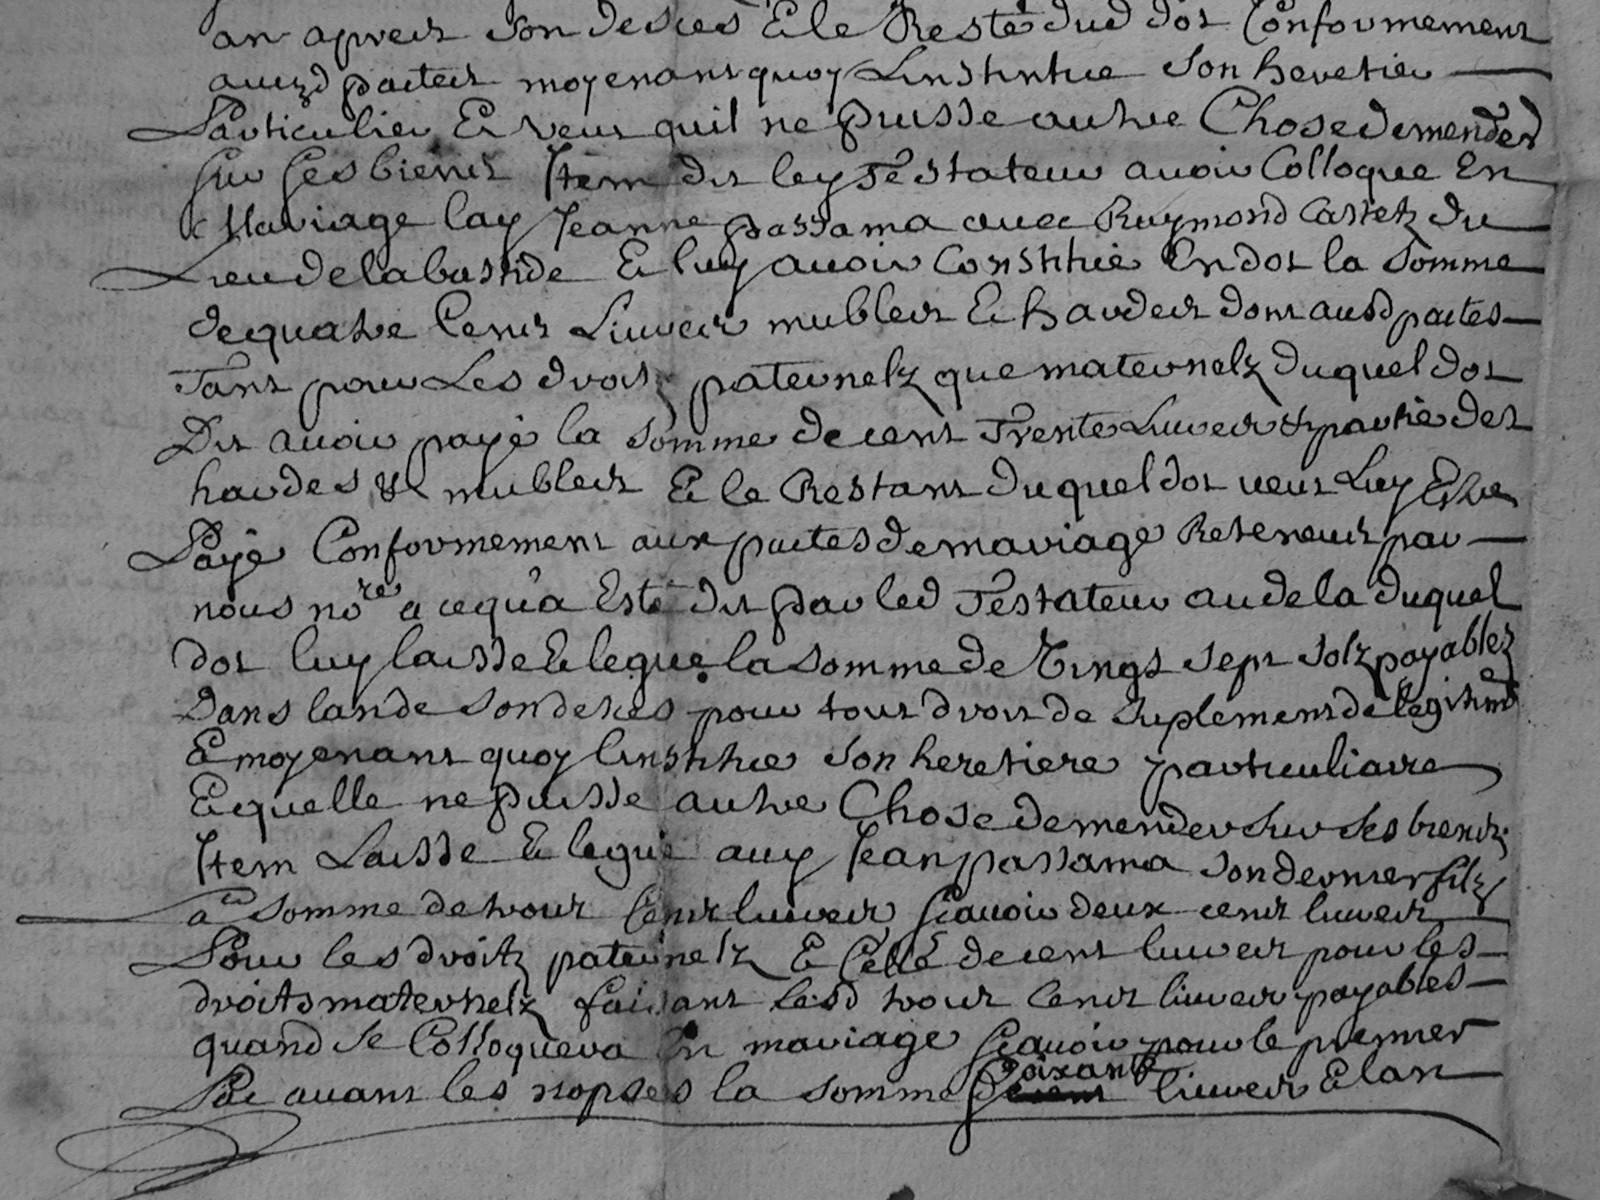 an apres son deces & le Reste dud dot Conformement
auxd pactes moyenant quoy Linstitue son heretier
Particulier Et veut quil ne puisse autre Chose demender
sur ses biens Item dit ley Testateur avoir Colloque En
Mariage lay Jeanne passama avec Raymond Castetz du
Lieu de labastide & luy avoir Constitué En dot la somme
de quatre Cens Livres mubles & hardes dont ausd pactes
Tant pour Les droitz paternelz que maternelz duquel dot
Dit avoir payé la somme de cent Trente Livres & partie des
hardes & mubles & le Restant duquel dot veut Luy Estre
Payé Conformement aux pactes de mariage Reteneus par
nous nore a ce qu'a Esté dit par led Testateur au dela duquel
dot luy laisse & legue la somme de Vingt sept solz payables
Dans lan de son deces pour tout droit de suplement de legitime
& moyenant quoy linstitue son heretiere particuliaire
Et quelle ne puisse autre Chose demender sur ses biens
Item Laisse & legue auy Jean passama son dernier filz
la somme de trois Cens livres scavoir deux cens livres
Pour les droitz paternelz & Celle de cent livres pour les
droits maternelz faisant lesd trois Cens livres payables
quand se Colloquera En mariage scavoir pour le premier
Pac avant les nopses la somme de soixante livres & lan